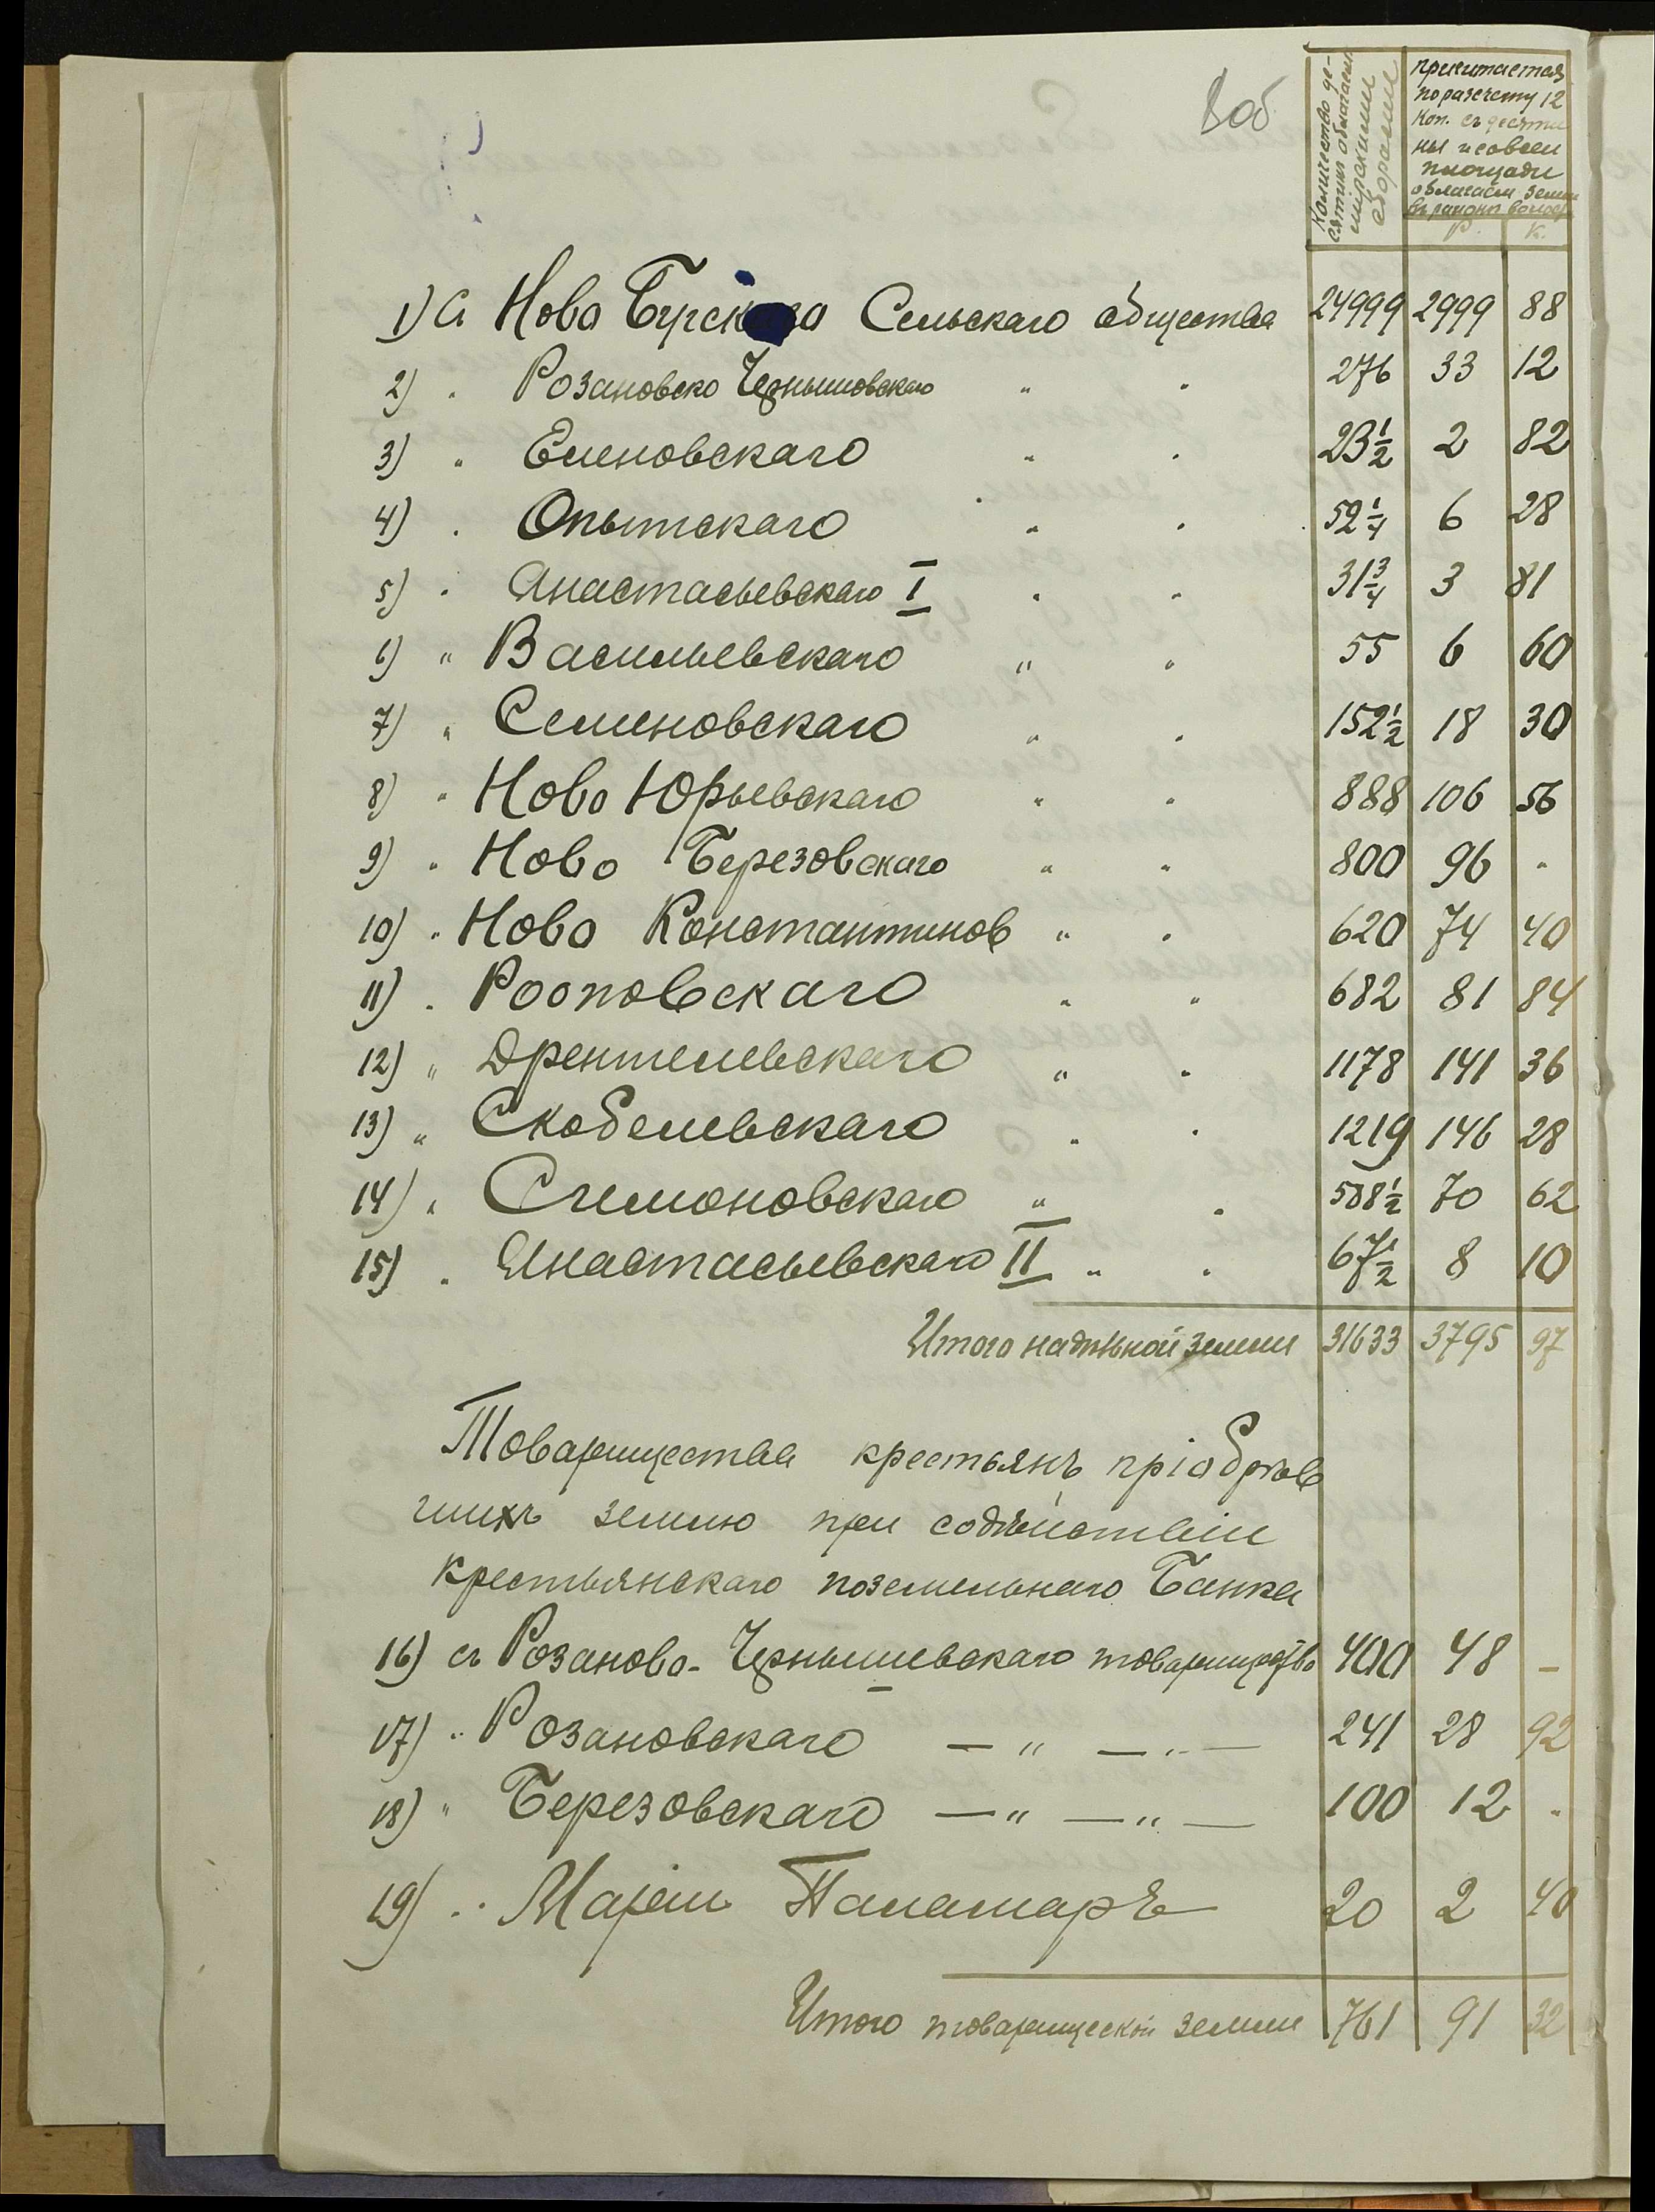 8об
Количество де-
сятинъ облагаемъ
мірскими
сборами
причитается
поразсчету 12
Коп. съ десяти
ны и совсей
площади
облагаем земли
въ районѣ волос
Р. К.
1) Съ Ново Бугскаго Сельскаго общества 24999 2999 88
2) . Розановско Чернышовскаго " . 276 33 12
3) " Еленовскаго " . 23½ 2 82
4) . Опытскаго " . 52¼ 6 28
5) . Анастасьевскаго I " " 31¾ 3 81
6) " Васильевскаго " " 55 6 60
7) " Семеновскаго " . 152½ 18 30
8) " Ново Юрьевскаго " " 888 106 56
9) " Ново Березовскаго " " 800 96 "
10) " Ново Константинов " . 620 74 40
11) . Роповскаго " " 682 81 84
12) " Дрентелевскаго " . 1178 141 36
13) " Скобелевскаго . . 1219 146 28
14) " Симоновскаго " . 588½ 70 62
15) . Анастасьевскаго II " . 67½ 8 10
Итого надѣльной земли 31633 3795 97
Товарищества крестьянъ пріобрѣв
шихъ землю при содѣйствіи
Крестьянскаго поземельнаго Банка
16) съ Розаново-Чернышевскаго товарищество 400 48 -
17) " Розановскаго — " — " — 241 28 92
18) " Березовскаго — " — " — 100 12 "
19) " Маріи Паламарь 20 2 40
Итого товарищеской земли 761 91 32